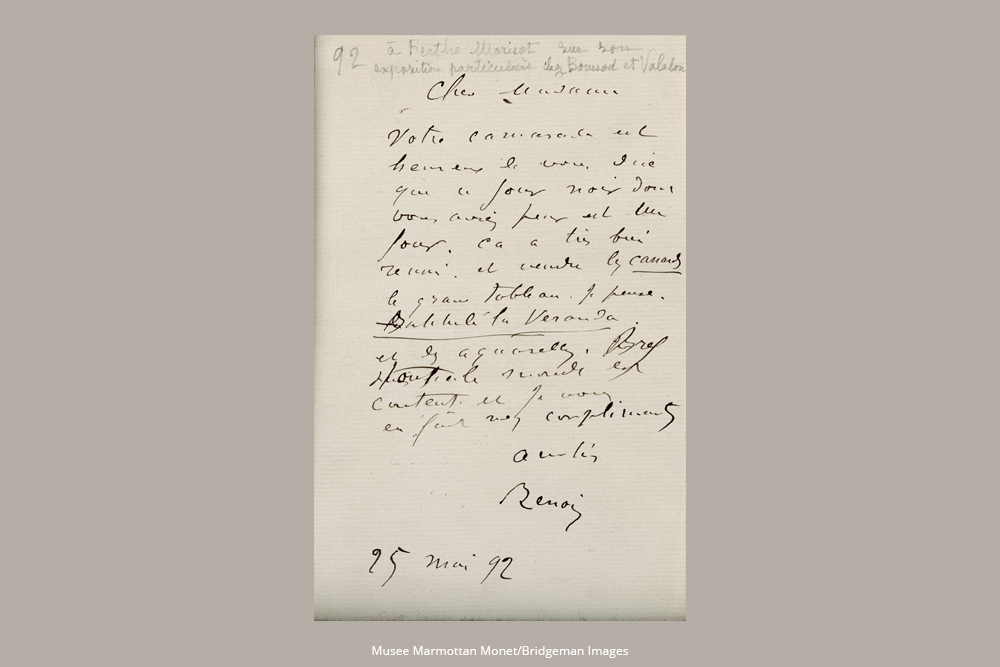 92 à Berthe Morisot sur son
exposition particulière chez Boussod et Valadon
Cher Madame
Votre camarade est
heureux de vous dire
que ce jour noir dont
vous aviez peur est un
jour. ça a très bien
reussi. et vendre les canards
le grand tableau. je pense.
la Veranda.
et des aquarelles. Bref
tout le monde est
content et je vous
en fais mes compliments
amitiés
Renoir
25 mai 92
Musee Marmottan Monet/Bridgeman Images